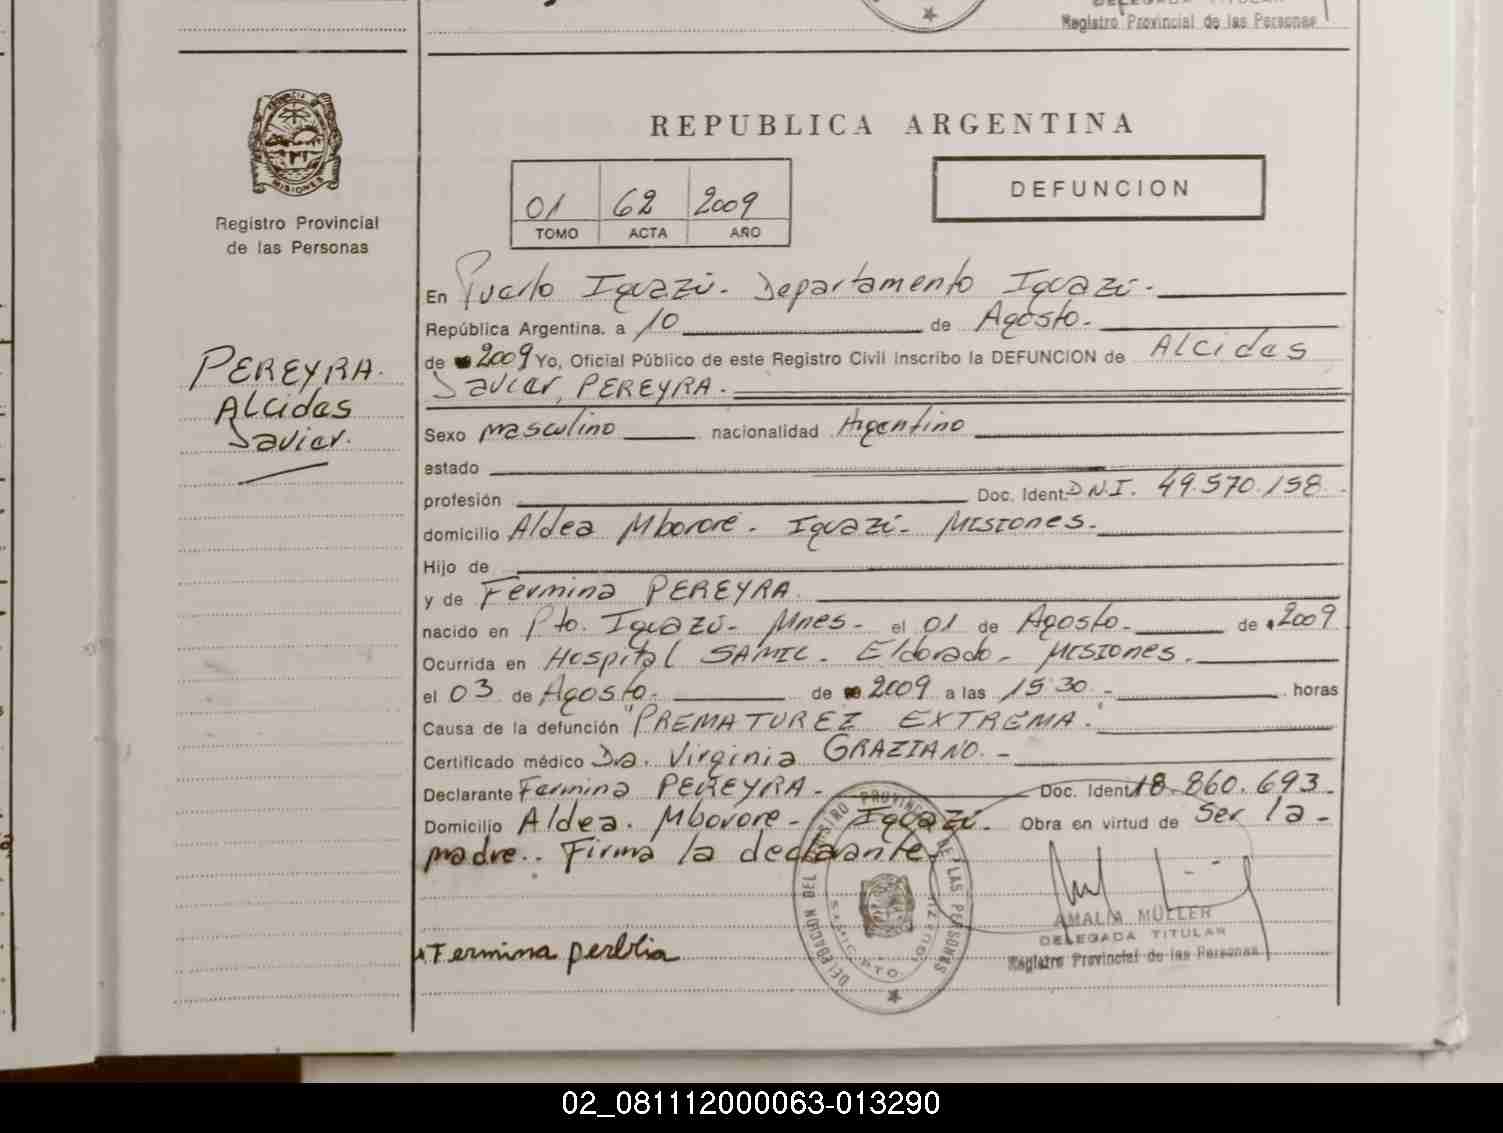 Registro Provincial de las Personas
PROVINCIA DE
MISIONES
Registro Provincial
de las Personas
REPUBLICA ARGENTINA
01 62 2009
TOMO ACTA AÑO
DEFUNCION
En Puerto Iguazú. Departamento Iguazú.
República Argentina, a 10 de Agosto.
de 2009 Yo, Oficial Público de este Registro Civil inscribo la DEFUNCION de Alcides
Javier, PEREYRA.
PEREYRA.
Alcides
Javier.
Sexo masculino nacionalidad Argentino
estado
profesión Doc. Ident. D.N.I. 49.570.158.
domicilio Aldea Mbororé. Iguazú. Misiones.
Hijo de
y de Fermina PEREYRA.
nacido en Pto. Iguazú. Mnes. el 01 de Agosto. de 2009
Ocurrida en Hospital SAMIC. Eldorado. Misiones.
el 03 de Agosto. de 2009 a las 15:30. horas
Causa de la defunción "PREMATUREZ EXTREMA."
Certificado médico Dra. Virginia GRAZIANO.
Declarante Fermina PEREYRA. Doc. Ident. 18.860.693.
Domicilio Aldea. Mbororé. Iguazú. Obra en virtud de Ser la
madre.. Firma la declarante.
DELEGACION DEL REGISTRO PROVINCIAL DE LAS PERSONAS
PTO. IGUAZU
AMALIA MÜLLER
DELEGADA TITULAR
Registro Provincial de las Personas
Fermina
02_081112000063-013290